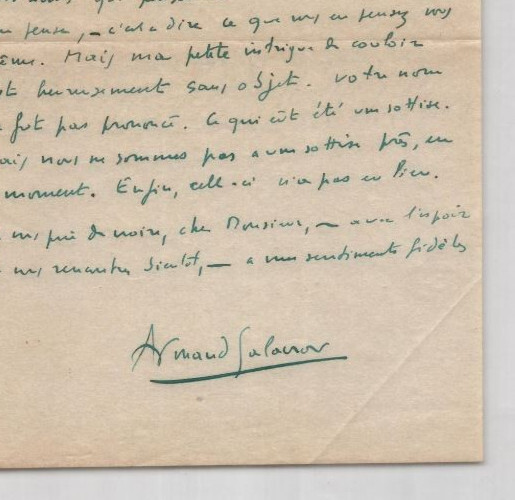 en pense, — c'est à dire ce que vous en pensez vous
même. Mais ma petite intrigue de couloir
heureusement sans objet. Votre nom
fut pas prononcé. Ce qui eût été une sottise.
mais nous ne sommes pas à une sottise près, en
moment. Enfin, celle-ci n'a pas eu lieu.
vous prie de croire, cher Monsieur, — avec l'espoir
vous rencontrer bientôt, — à mes sentiments fidèles
Armand Salacrou